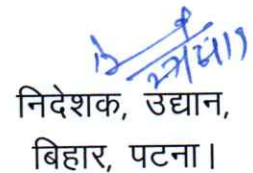 निदेशक, उद्यान,
बिहार, पटना।